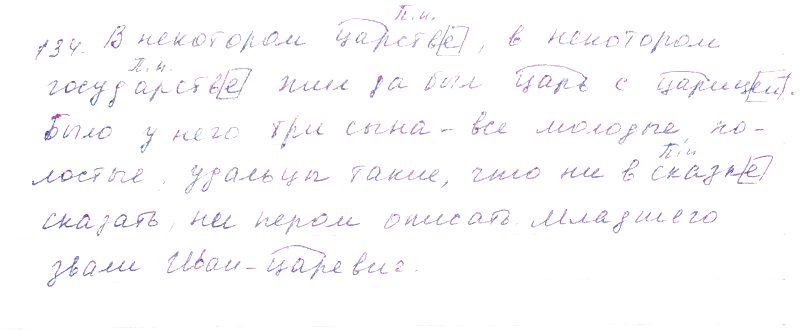 П.п.
134. В некотором царстве, в некотором
П.п.
государстве жил да был царь с царицей.
Было у него три сына - все молодые, хо-
П.п.
лостые, удальцы такие, что ни в сказке
сказать, ни пером описать. Младшего
звали Иван-царевич.